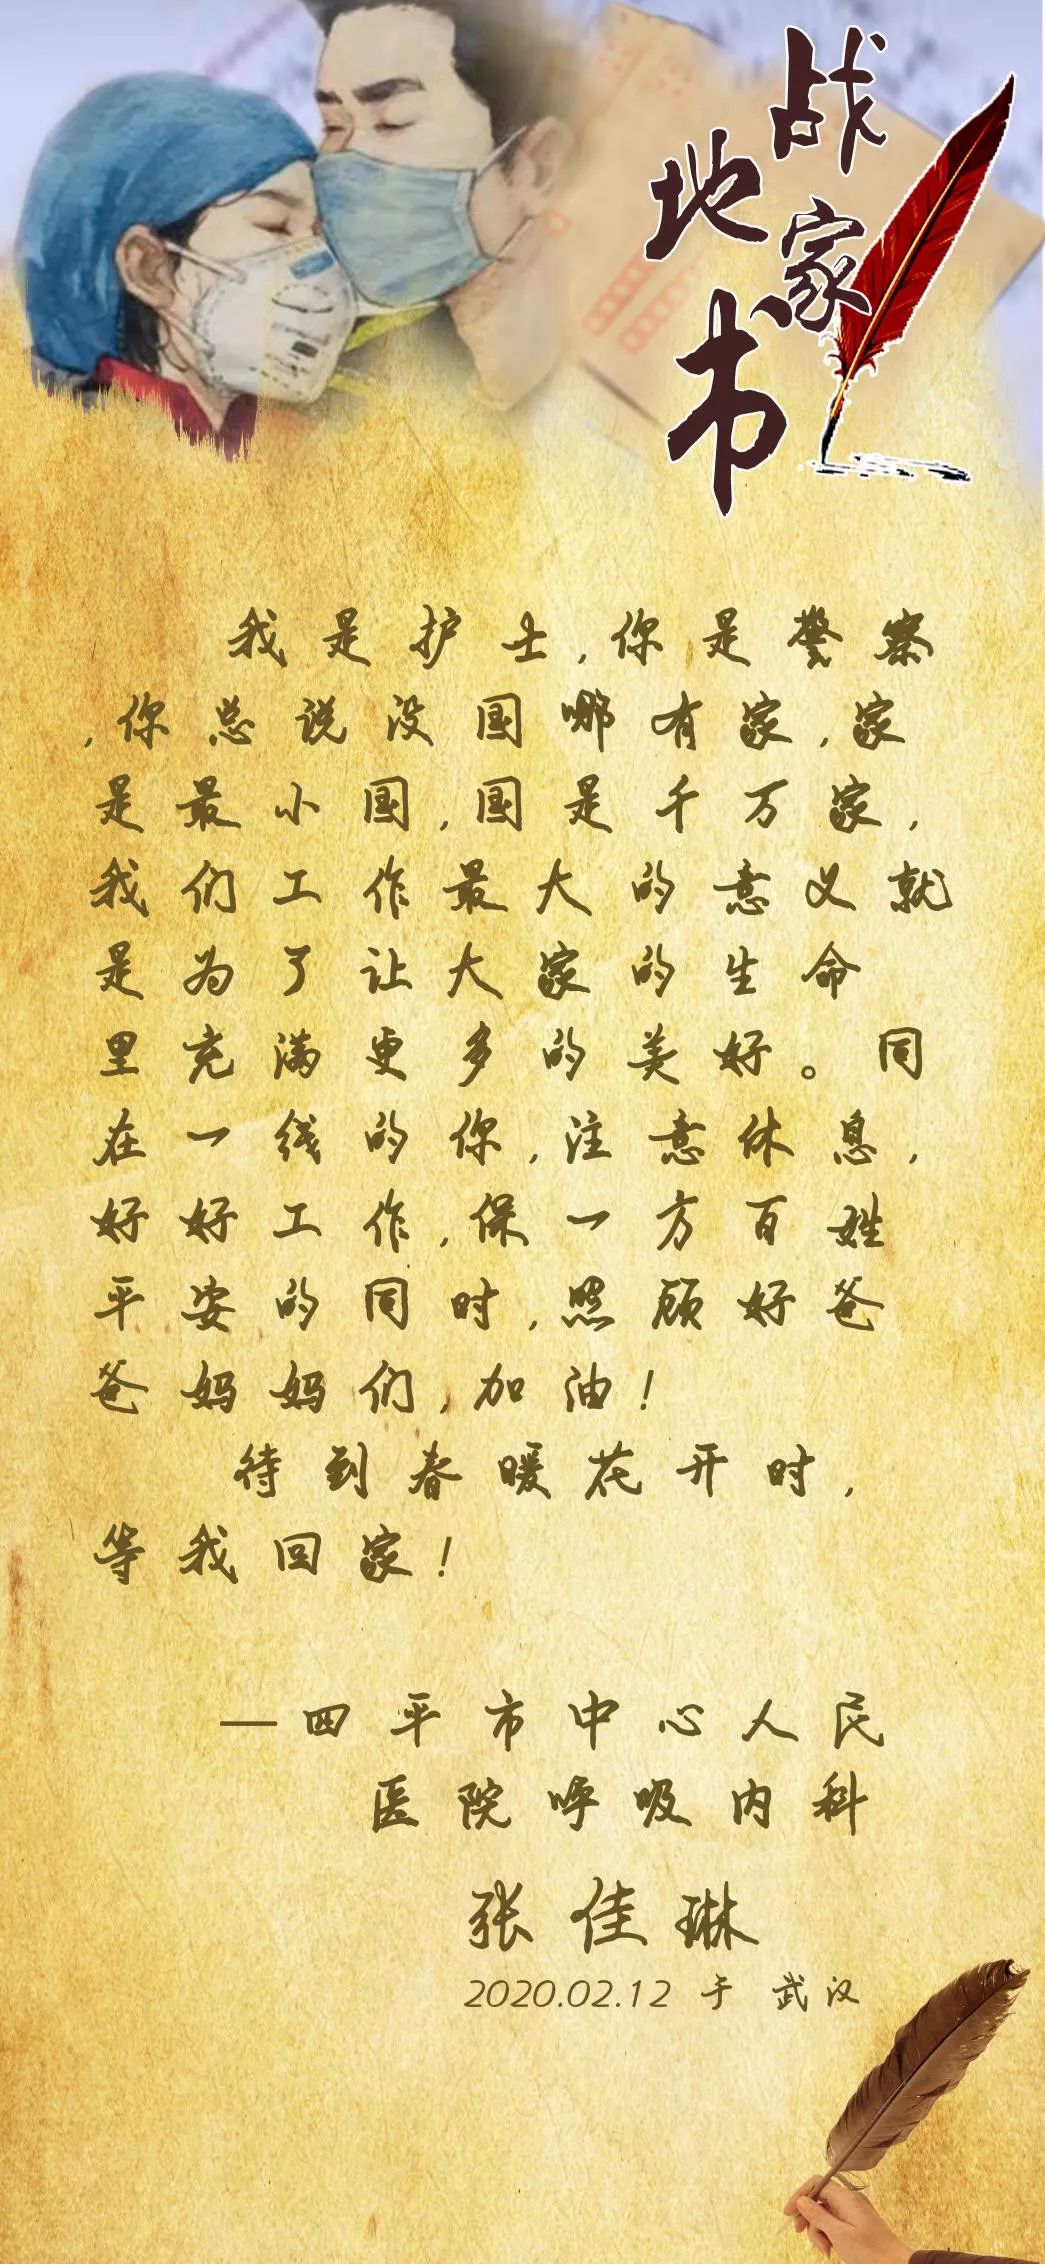 战地家书
我是护士,你是警察
,你总说没国哪有家,家
是最小国,国是千万家,
我们工作最大的意义就
是为了让大家的生命
里充满更多的美好。同
在一线的你,注意休息,
好好工作,保一方百姓
平安的同时,照顾好爸
爸妈妈们,加油!
待到春暖花开时,
等我回家!
—四平市中心人民
医院呼吸内科
张佳琳
2020.02.12 于 武汉